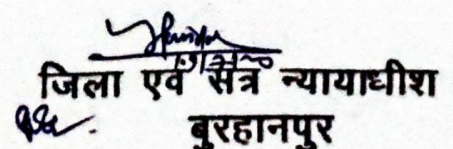 जिला एवं सत्र न्यायाधीश
बुरहानपुर